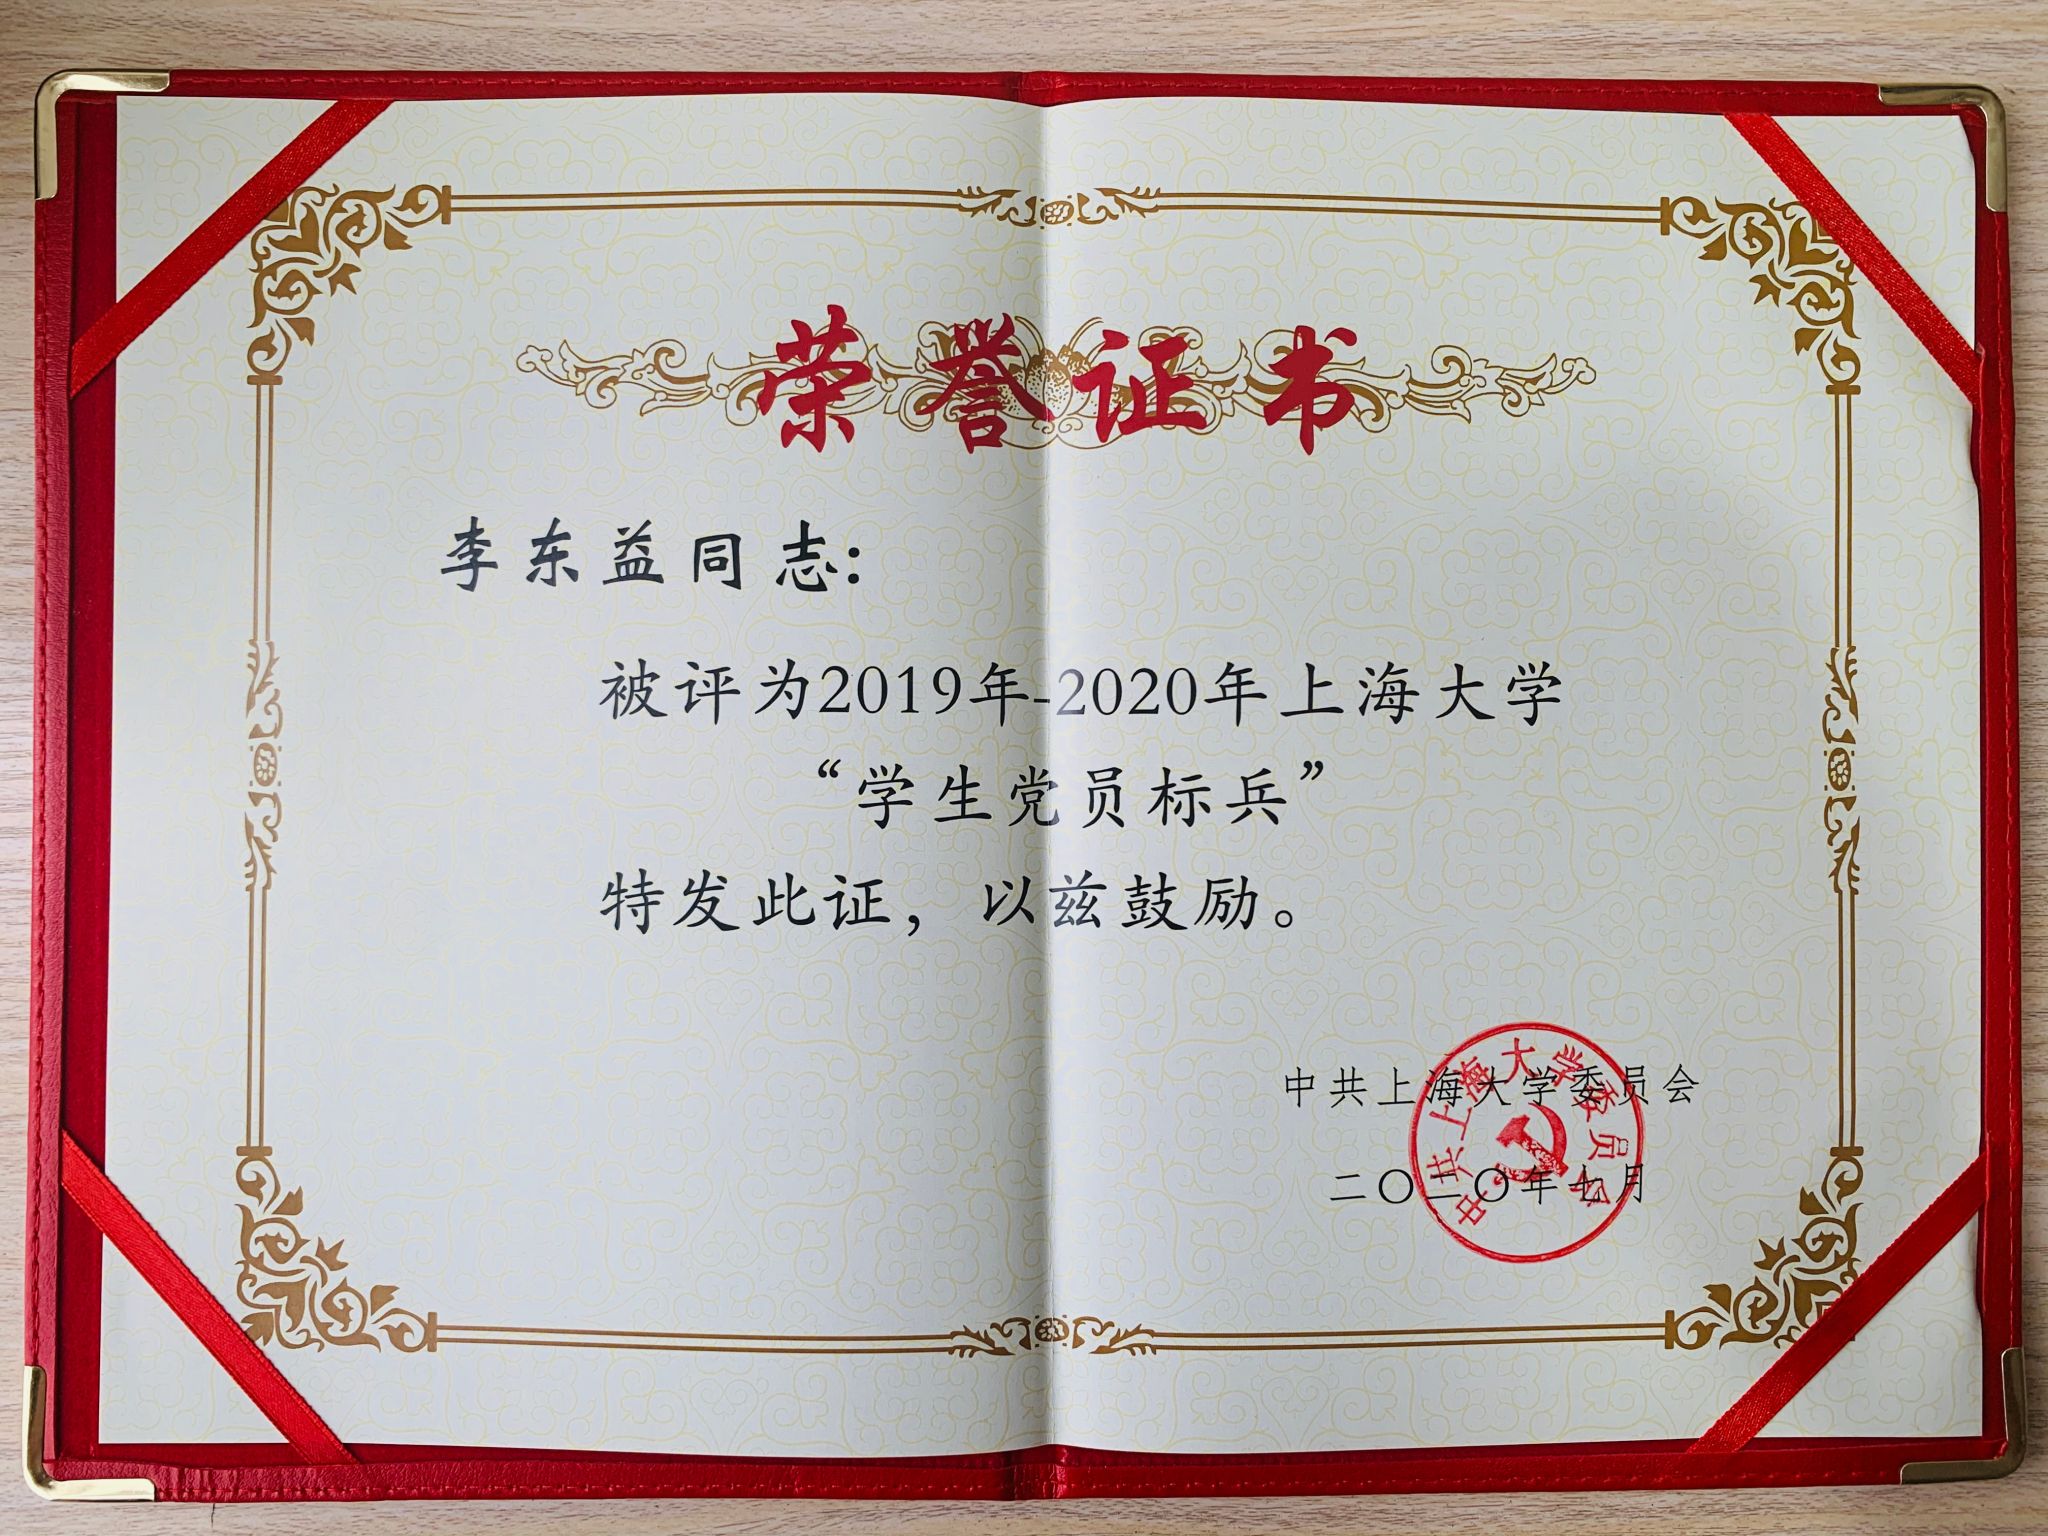 荣誉证书
李东益同志：
被评为2019年-2020年上海大学
“学生党员标兵”
特发此证，以兹鼓励。
中共上海大学委员会
二〇二〇年七月
中共上海大学委员会